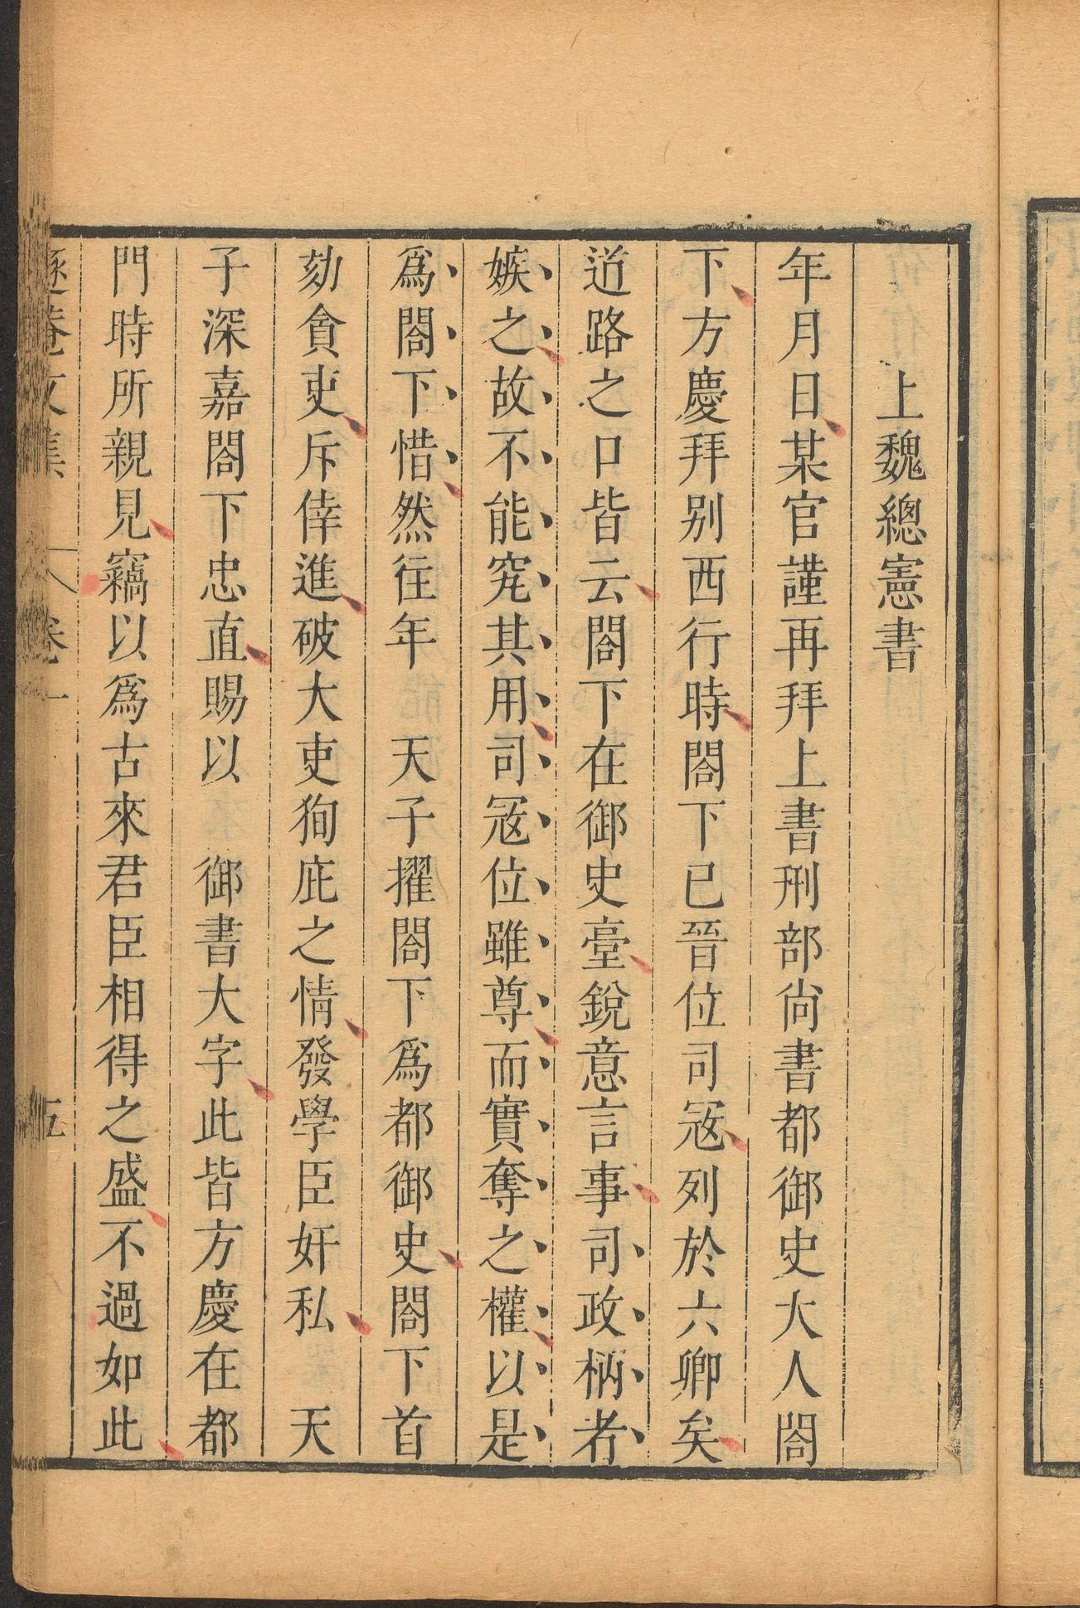 上魏總憲書
年月日某官謹再拜上書刑部尙書都御史大人閤
下方慶拜別西行時閤下已晉位司寇列於六卿矣
道路之口皆云閤下在御史臺銳意言事司政柄者
嫉之故不能究其用司寇位雖尊而實奪之權以是
爲閤下惜然往年　天子擢閤下爲都御史閤下首
劾貪吏斥倖進破大吏狥庇之情發學臣奸私　天
子深嘉閤下忠直賜以　御書大字此皆方慶在都
門時所親見竊以爲古來君臣相得之盛不過如此
文集　卷一　五